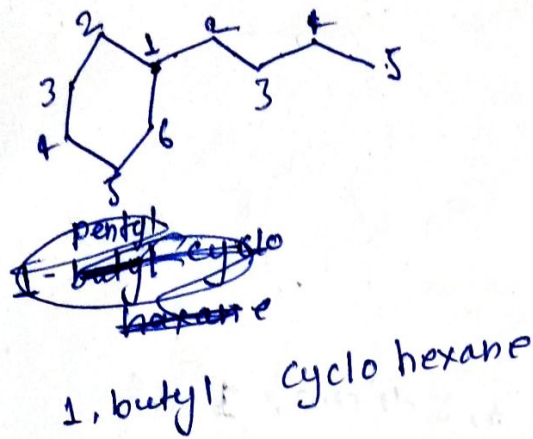 2
1
2
4
5
3
3
4
6
5
pentyl
1- butyl cyclo
hexane
1, butyl: cyclo hexane